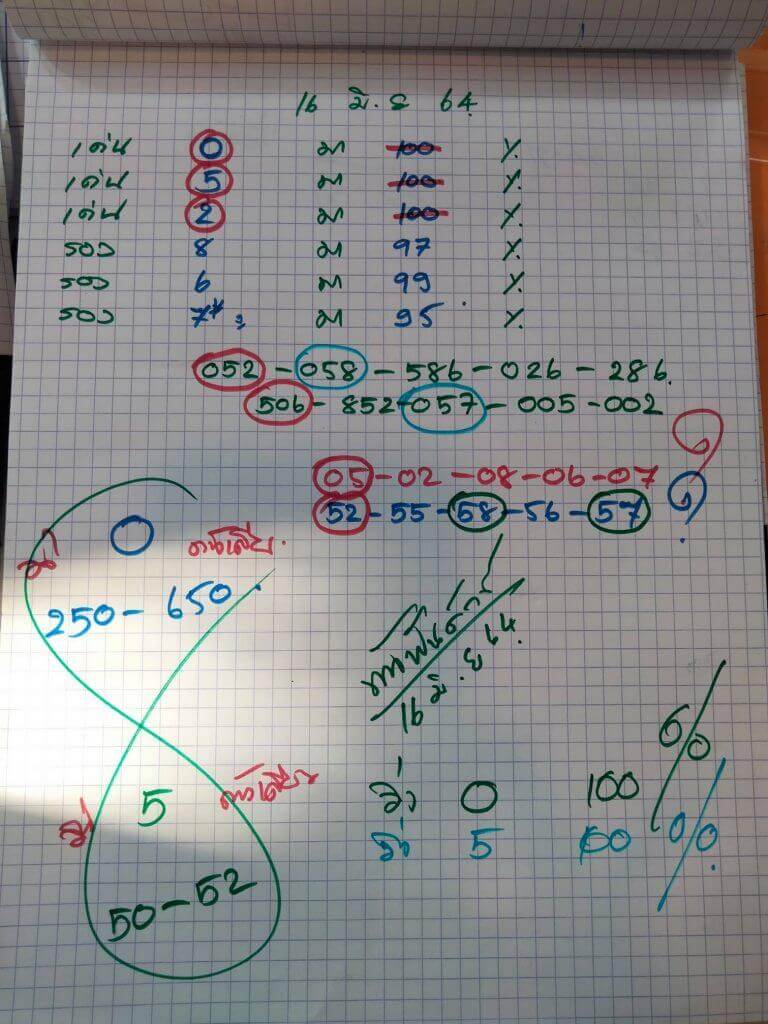 16 มิ.ย 64
เด่น 0 มา 100 %
เด่น 5 มา 100 %
เด่น 2 มา 100 %
รอง 8 มา 97 %
รอง 6 มา 99 %
รอง 7* มา 95 %
052 - 058 - 586 - 026 - 286
506 - 852 - 057 - 005 - 002
05 - 02 - 08 - 06 - 07
52 - 55 - 58 - 56 - 57
0 ตัวเดียว
250 - 650
16 มิ.ย 64
5 ตัวเดียว
50 - 52
วิ่ง 0 100 %
วิ่ง 5 100 %